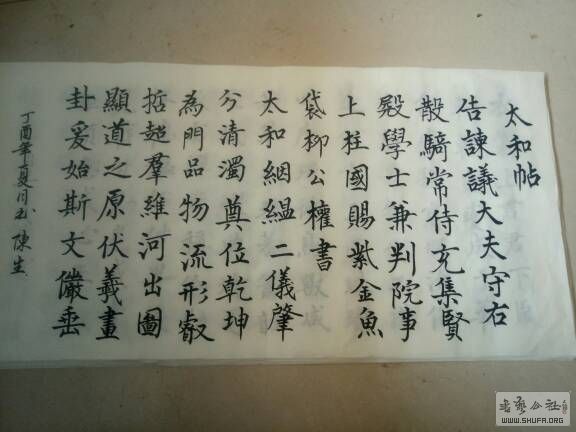 太和帖
告諫議大夫守右
散騎常侍充集賢
殿學士兼判院事
上柱國賜紫金魚
袋柳公權書
太和絪縕二儀肇
分清濁奠位乾坤
為門品物流形叡
哲超羣維河出圖
顯道之原伏羲畫
卦爰始斯文儼垂
丁酉年夏月書 陳生
書藝公社
WWW.SHUFA.ORG